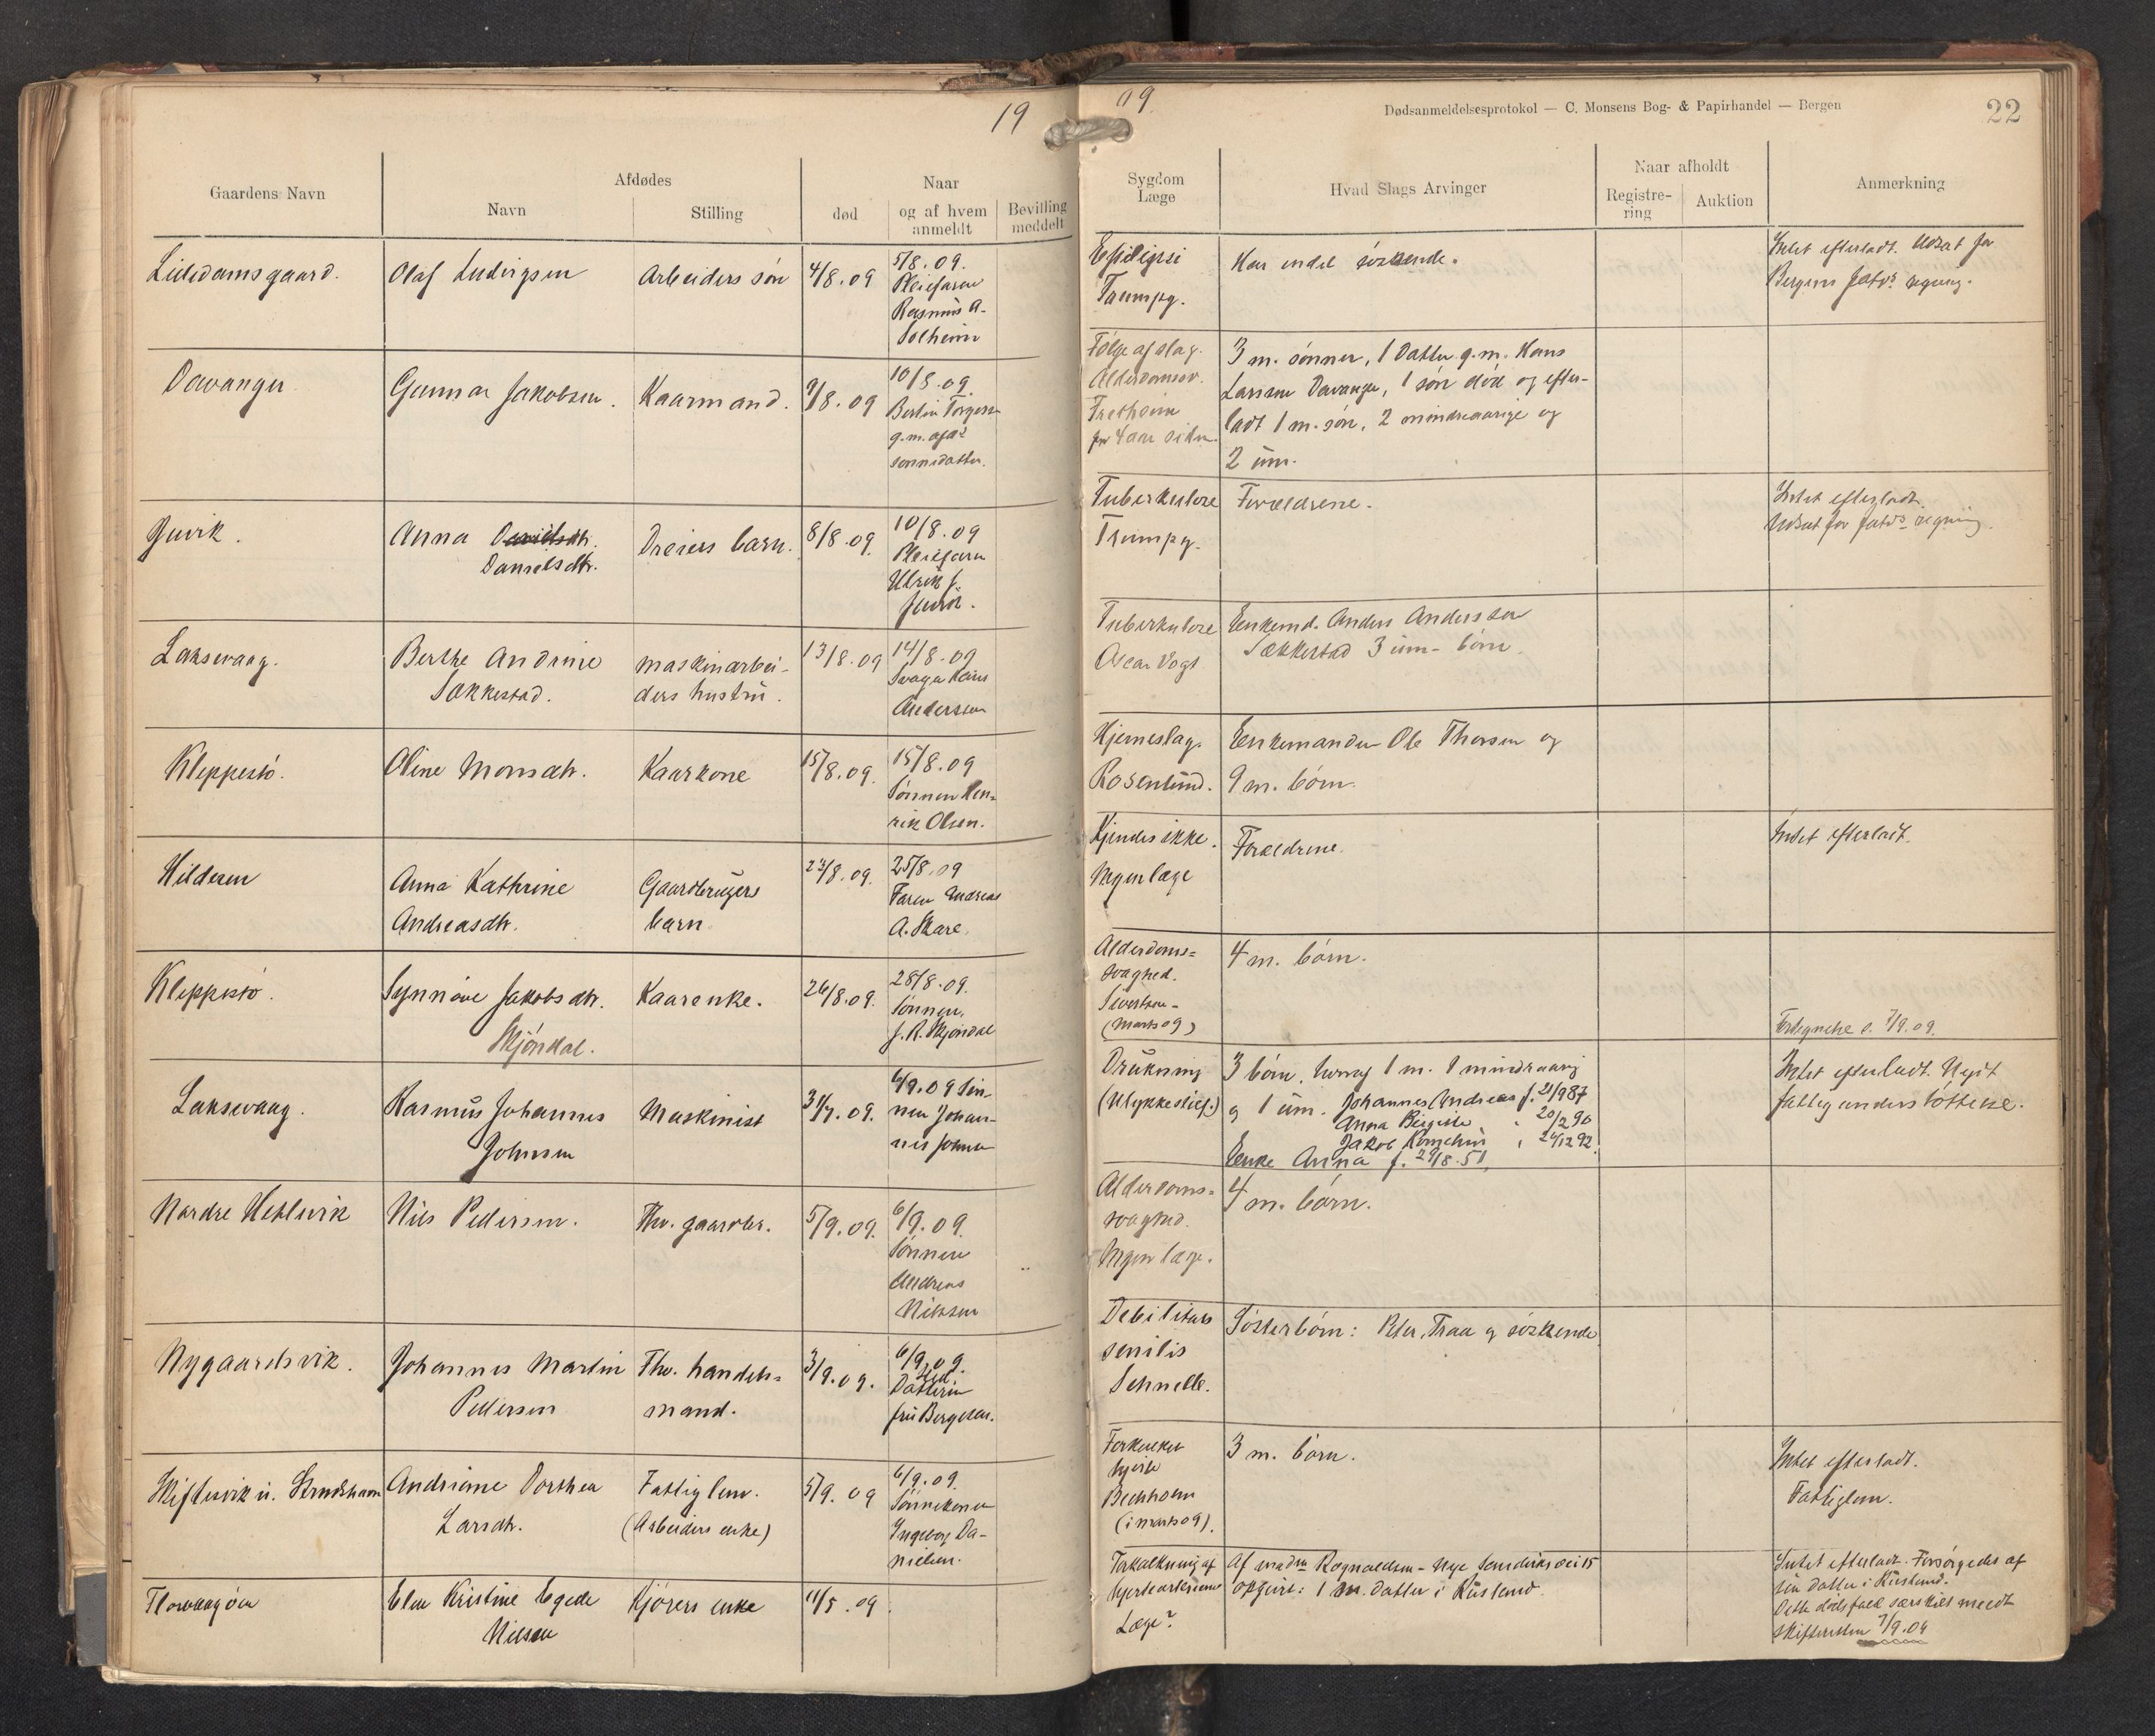 19
09.
Dødsanmeldelsesprotokol — C. Monsens Bog- & Papirhandel — Bergen
22
Gaardens Navn
Afdødes
Navn
Stilling
Naar
død
og af hvem
anmeldt
Bevilling
meddelt
Sygdom
Læge
Hvad Slags Arvinger
Naar afholdt
Registre-
ring
Auktion
Anmerkning
Olaf Ludvigsen
Arbeiders søn
4/8.09
5/8.09.
Pleiefaren
Rasmus A.
Solheim
Trumpy.
Har endel søskende.
Intet efterladt. Udsat for
Bergens fatv. regning.
Davanger
Gunnar Jakobsen.
Kaarmand.
9/8.09
10/8.09.
g.m. afd.
sønnedatter.
Følge af slag.
Alderdomssv.
Tretheim
for 4 aar siden.
3 m. sønner, 1 datter g.m. Hans
Larsen Davanger, 1 søn død og efter-
ladt 1 m. søn, 2 mindreaarige og
2 um.
Juvik.
Anna
Danielsdtr.
Dreiers barn.
8/8.09.
10/8.09
Pleiefaren
Ulrik J.
Juvik.
Tuberkulose
Trumpy.
Forældrene.
Intet efterladt.
Udsat for fatvs regning.
Laksevaag.
Berthe Andrine
Sækkestad.
maskinarbei-
ders hustru.
13/8.09
14/8.09
Svoger Hans
Andersen
Tuberkulose
Oscar Vogt
Enkemd. Anders Andersen
Sækkestad 3 um- børn.
Kleppestø.
Oline Monsdtr.
Kaarkone
15/8.09.
15/8.09
Sønnen Hen-
rik Olsen.
Hjerneslag.
Rosenlund.
Enkemanden Ole Thorsen og
9 m. børn.
Hilderen
Anna Kathrine
Andreasdtr.
Gaardbrugers
barn
23/8.09.
25/8.09
Faren Andreas
A. Skare.
Kjendes ikke.
Ingen læge
Forældrene.
Intet efterladt.
Kleppestø.
Synnøve Jakobsdtr.
Skjøndal.
Kaarenke.
26/8.09.
28/8.09.
Sønnen,
J. R. Skjøndal
Alderdoms-
svaghed.
Sivertsen-
(marts 09)
4 m. børn.
7/9.09.
Laksevaag.
Rasmus Johannes
Johnsen
Maskinist
31/7.09.
6/9.09 Søn-
nen Johan-
nes Johnsen
Drukning
(Ulykkestilf.)
3 børn, hvoraf 1 m. 1 mindreaarig
og 1 um. Johannes Andreas f. 21/9 87
Anna Birgitte " 20/2 90
Jakob Kornelius " 24/12 92.
Enke Anna f. 29/8.51.
Intet efterladt. Nydt
fattigunderstøttelse.
Nordre
Nils Pedersen.
Fhv. gaardbr.
5/9.09.
6/9.09.
Sønnen
Andreas
Nilssen
Alderdoms-
svaghed.
Ingen læge.
4 m. børn.
Nygaardsvik.
Johannes Martin
Pedersen
Fhv. handels-
mand.
3/9.09.
6/9.09.
Datteren
fru Bergesen.
Debilitas
senilis
Schnelle.
Søsterbørn: Peter Traa og søskende
Skiftesvik u. Strudshavn
Andriane Dorthea
Larsdtr.
Fattiglem.
(Arbeiders enke)
5/9.09
6/9.09.
Sønnekonen
Ingeborg Da-
nielsen.
hjerte
Buchholm
(i marts 09).
3 m. børn.
Intet efterladt.
Fattiglem.
Florvaagøen
Elen Kristine Egede
Nilsen
Kjørers enke
11/5.09.
Forkalkning af
hjertearterierne
Læge?
opgivet: 1 m. datter i Rusland.
Intet efterladt. Forsørgedes af
sin datter i Rusland.
Dette dødsfald særskilt meldt
skifteretten 7/9.09